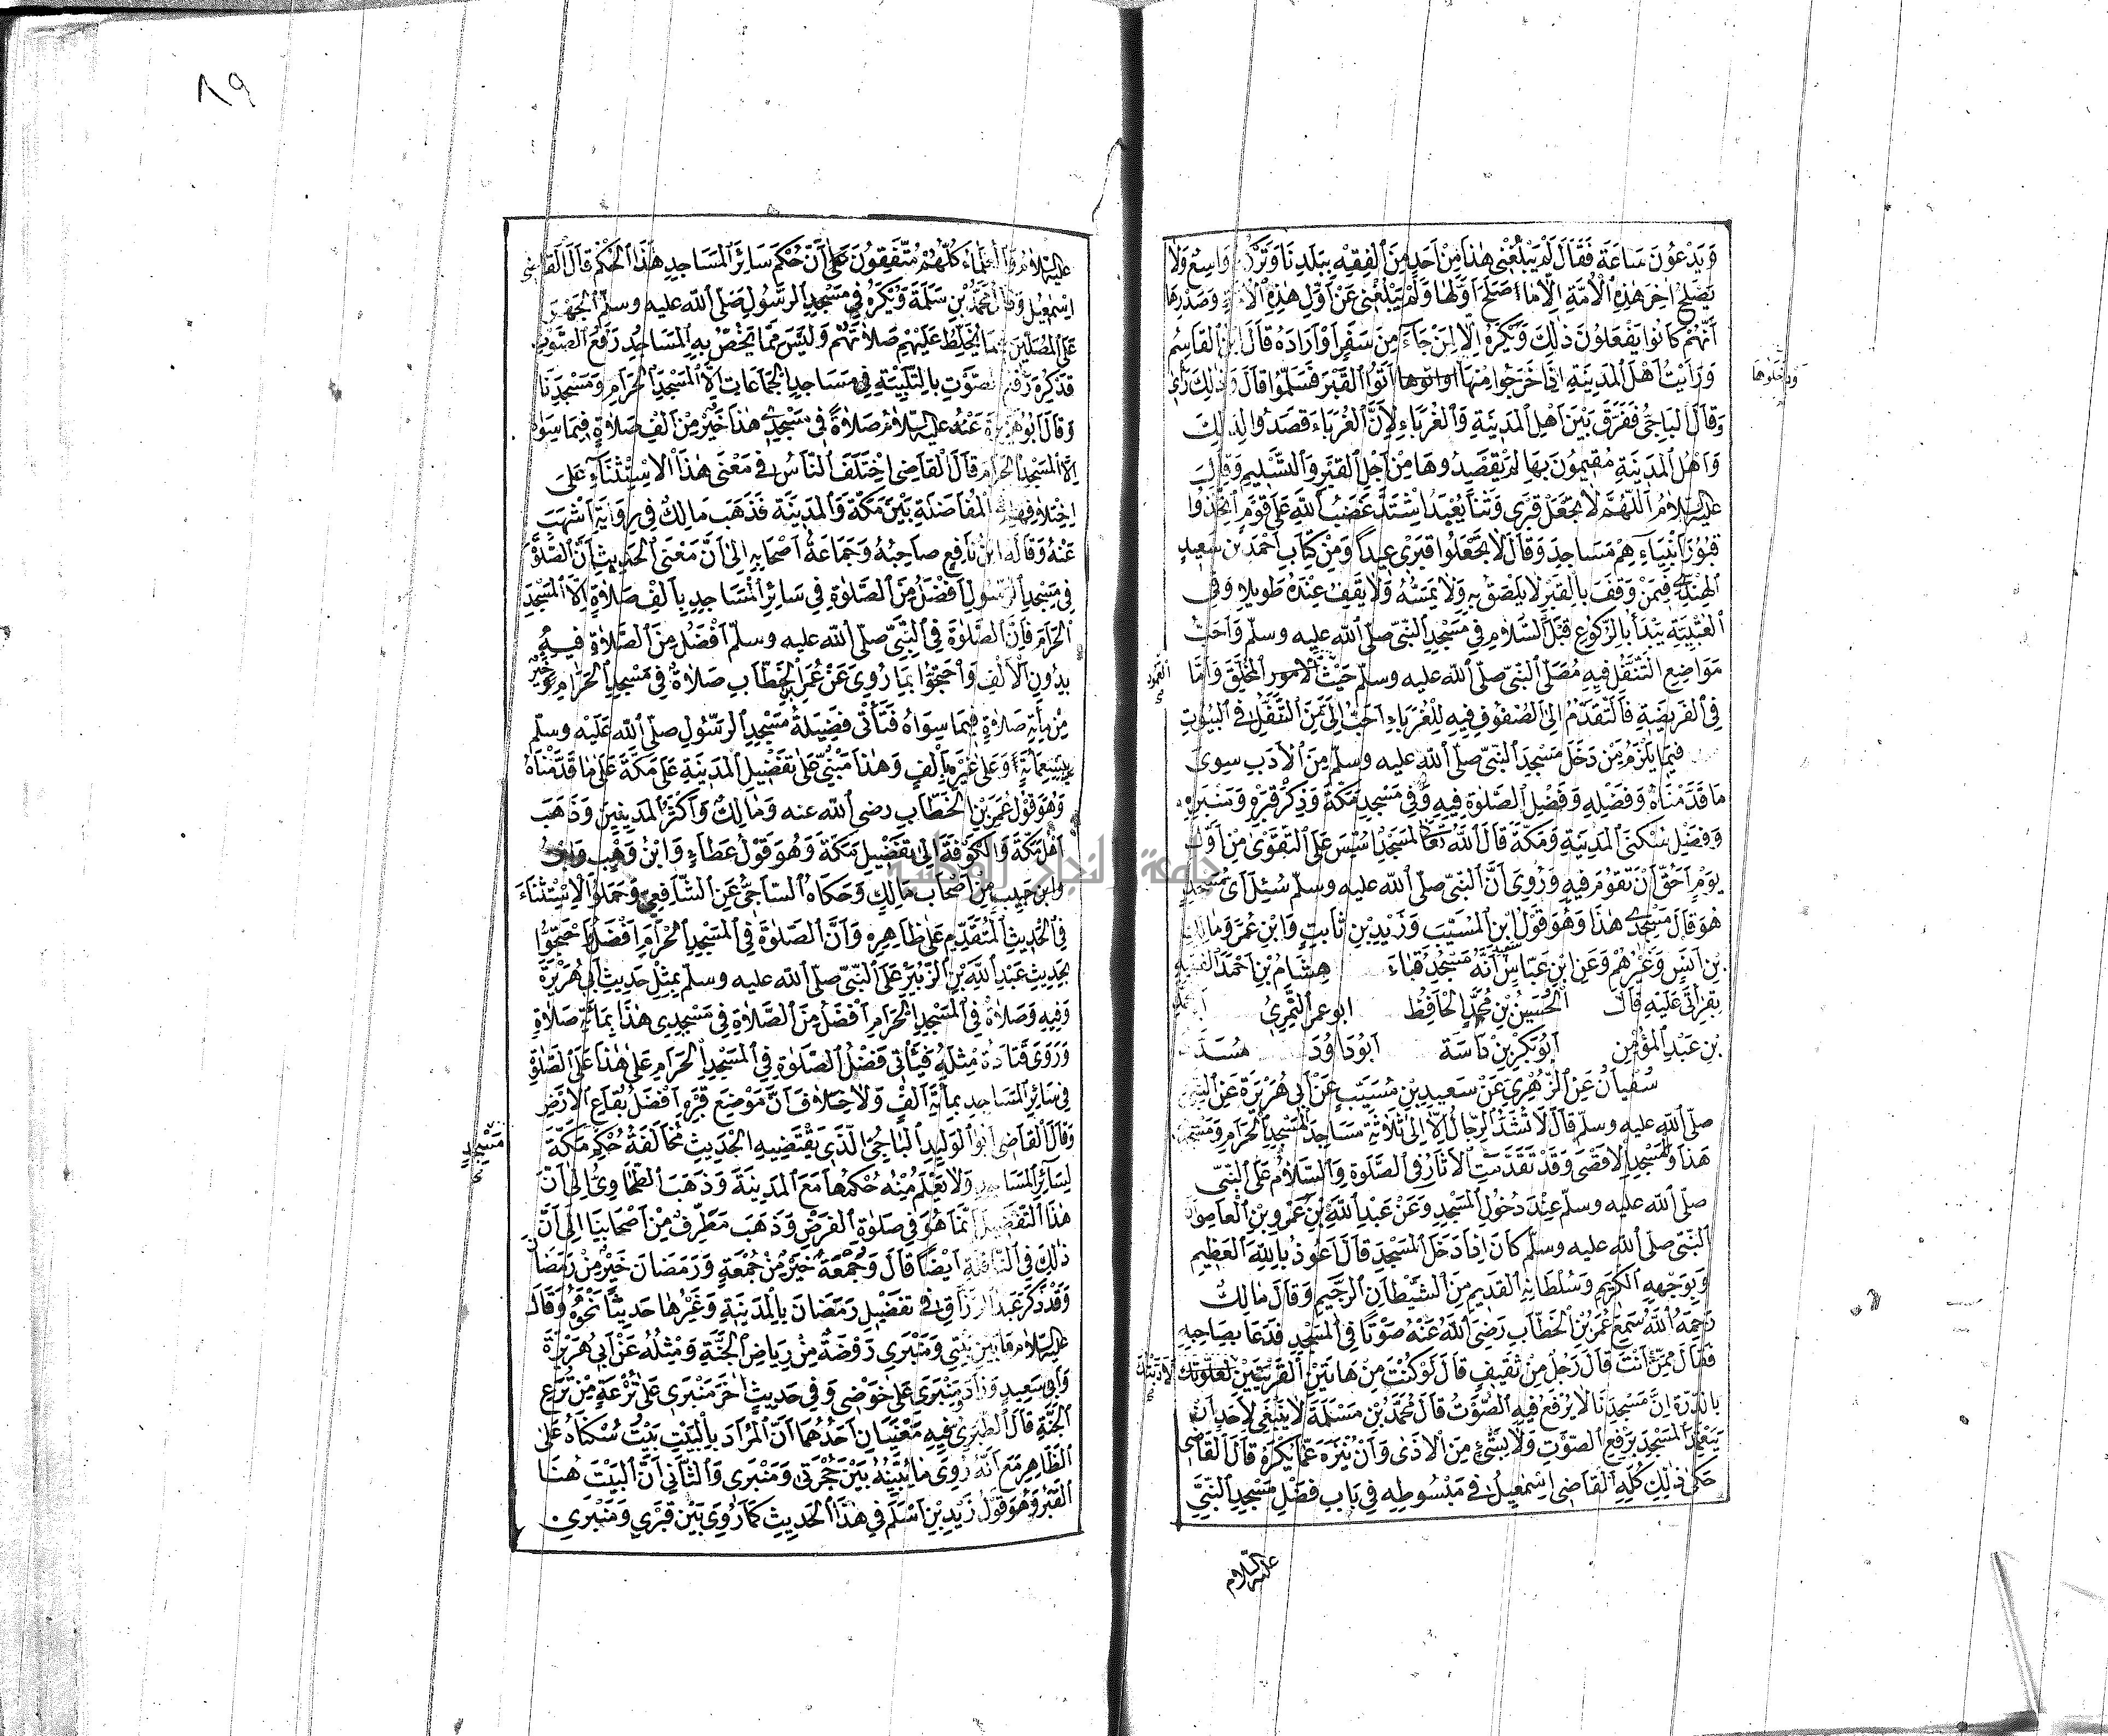 وَيَدْعُونَ سَاعَة فَقَالَ لَمْ يَبْلُغْنِي هٰذَا مِنْ أَحَدٍ مِنَ الْفِقْهِ بِبَلَدِنَا وَتَرْكُهُ وَاسِعٌ وَلَا
يَصْلُحُ آخِرَ هٰذِهِ الْأُمَّةِ إِلَّا مَا أَصْلَحَ أَوَّلَهَا وَلَمْ يَبْلُغْنِي عَنْ أَوَّلِ هٰذِهِ الْأُمَّةِ وَصَدْرِهَا
أَنَّهُمْ كَانُوا يَفْعَلُونَ ذٰلِكَ وَيُكْرَهُ إِلَّا لِمَنْ جَاءَ مِنْ سَفَرٍ أَوْ أَرَادَهُ قَالَ ابْنُ الْقَاسِمِ
وَرَأَيْتُ أَهْلَ الْمَدِينَةِ إِذَا خَرَجُوا مِنْهَا أَتَوُا الْقَبْرَ فَسَلَّمُوا قَالَ وَذٰلِكَ رَأْيٌ
ودخلوها
وَقَالَ الْبَاجِيُّ فَفَرَّقَ بَيْنَ أَهْلِ الْمَدِينَةِ وَالْغُرَبَاءِ لِأَنَّ الْغُرَبَاءَ قَصَدُوا لِذٰلِكَ
وَأَهْلُ الْمَدِينَةِ مُقِيمُونَ بِهَا لَمْ يَقْصِدُوهَا مِنْ أَجْلِ الْقَبْرِ وَالتَّسْلِيمِ وَقَالَ
عليه السلام اللّٰهُمَّ لَا تَجْعَلْ قَبْرِي وَثَنًا يُعْبَدُ اشْتَدَّ غَضَبُ اللّٰهِ عَلَى قَوْمٍ اتَّخَذُوا
قُبُورَ أَنْبِيَاءِهِمْ مَسَاجِدَ وَقَالَ لَا تَجْعَلُوا قَبْرِي عِيدًا وَمِنْ كِتَابِ أَحْمَدَ بْنِ سَعِيدٍ
الْهِنْدِيِّ فِيمَنْ وَقَفَ بِالْقَبْرِ لَا يَلْصَقُ بِهِ وَلَا يَمَسُّهُ وَلَا يَقِفُ عِنْدَهُ طَوِيلًا وَفِي
الْعُتْبِيَّةِ يَبْدَأُ بِالرُّكُوعِ قَبْلَ السَّلَامِ فِي مَسْجِدِ النَّبِيِّ صلّى اللّٰه عليه وسلّم وَأَحَبُّ
مَوَاضِعِ التَّنَفُّلِ فِيهِ مُصَلَّى النَّبِيِّ صلّى اللّٰه عليه وسلّم حَيْثُ الْمُخَلَّقَ وَأَمَّا
العمود
فِي الْفَرِيضَةِ فَالتَّقَدُّمُ إِلَى الصُّفُوفِ فِيهِ لِلْغُرَبَاءِ أَحَبُّ إِلَيَّ مِنَ التَّنَفُّلِ فِي الْبُيُوتِ
فِيمَا يَلْزَمُ مَنْ دَخَلَ مَسْجِدَ النَّبِيِّ صلّى اللّٰه عليه وسلّم مِنَ الْأَدَبِ سِوَى
مَا قَدَّمْنَاهُ وَفَضْلِهِ وَفَضْلِ الصَّلٰوةِ فِيهِ وَفِي مَسْجِدِ مَكَّةَ وَذِكْرُ قَبْرِهِ وَمِنْبَرِهِ
وَفَضْلِ سُكْنَى الْمَدِينَةِ وَمَكَّةَ قَالَ اللّٰهُ تَعَالَى لَمَسْجِدٌ أُسِّسَ عَلَى التَّقْوٰى مِنْ أَوَّلِ
يَوْمٍ أَحَقُّ أَنْ تَقُومَ فِيهِ وَرُوِيَ أَنَّ النَّبِيَّ صلّى اللّٰه عليه وسلّم سُئِلَ أَيُّ مَسْجِدٍ
هُوَ قَالَ مَسْجِدِي هٰذَا وَهُوَ قَوْلُ ابْنِ الْمُسَيَّبِ وَزَيْدِ بْنِ ثَابِتٍ وَابْنِ عُمَرَ وَمَالِكِ
بْنِ أَنَسٍ وَغَيْرِهِمْ وَعَنِ ابْنِ عَبَّاسٍ أَنَّهُ مَسْجِدُ قُبَاءَ هِشَامُ بْنِ أَحْمَدَ الْفَقِيهِ
بِقِرَاءَتِي عَلَيْهِ قَالَ الْحُسَيْنُ بْنُ مُحَمَّدٍ الْحَافِظُ أبو عمر النَّمِرِيُّ
بْنِ عَبْدِ الْمُؤْمِنِ أَبُو بَكْرِ بْنُ دَاسَةَ أَبُو دَاوُدَ مُسَدَّدٌ
سُفْيَانُ عَنِ الزُّهْرِيِّ عَنْ سَعِيدِ بْنِ مُسَيَّبٍ عَنْ أَبِي هُرَيْرَةَ عَنِ النَّبِيِّ
صلّى اللّٰه عليه وسلّم قَالَ لَا تُشَدُّ الرِّحَالُ إِلَّا إِلَى ثَلَاثَةِ مَسَاجِدَ الْمَسْجِدِ الْحَرَامِ وَمَسْجِدِي
هَذَا وَالْمَسْجِدِ الْأَقْصَى وَقَدْ تَقَدَّمَتِ الْآثَارُ فِي الصَّلٰوةِ وَالسَّلَامُ عَلَى النَّبِيِّ
صلّى اللّٰه عليه وسلّم عِنْدَ دُخُولِ الْمَسْجِدِ وَعَنْ عَبْدِ اللّٰهِ بْنِ عَمْرِو بْنِ الْعَاصِ أَنَّ
النَّبِيَّ صلّى اللّٰه عليه وسلّم كَانَ إِذَا دَخَلَ الْمَسْجِدَ قَالَ أَعُوذُ بِاللّٰهِ الْعَظِيمِ
وَبِوَجْهِهِ الْكَرِيمِ وَسُلْطَانِهِ الْقَدِيمِ مِنَ الشَّيْطَانِ الرَّجِيمِ وَقَالَ مَالِكٌ
رَحِمَهُ اللّٰهُ سَمِعَ عُمَرُ بْنُ الْخَطَّابِ رَضِيَ اللّٰهُ عَنْهُ صَوْتًا فِي الْمَسْجِدِ فَدَعَا بِصَاحِبِهِ
فَقَالَ مِمَّنْ أَنْتَ قَالَ رَجُلٌ مِنْ ثَقِيفٍ قَالَ لَوْ كُنْتَ مِنْ هَاتَيْنِ الْقَرْيَتَيْنِ لعلوتك لَأَدَّبْتُكَ
بالدّرّة إِنَّ مَسْجِدَنَا لَا يُرْفَعُ فِيهِ الصَّوْتُ قَالَ مُحَمَّدُ بْنُ مَسْلَمَةَ لَا يَنْبَغِي لِأَحَدٍ أَنْ
يَتَعَمَّدَ الْمَسْجِدَ بِرَفْعِ الصَّوْتِ وَلَا بِشَيْءٍ مِنَ الْأَذَى وَأَنْ يُنَزَّهَ عَمَّا يُكْرَهُ قَالَ الْقَاضِي
حَكَى ذٰلِكَ كُلَّهُ الْقَاضِي إِسْمَعِيلُ فِي مَبْسُوطِهِ فِي بَابِ فَضْلِ مَسْجِدِ النَّبِيِّ
عليه السلام
٨٩
عليه السلام وَالْعُلَمَاءُ كُلُّهُمْ مُتَّفِقُونَ عَلَى أَنَّ حُكْمَ سَائِرِ الْمَسَاجِدِ هٰذَا الْحُكْمُ قَالَ الْقَاضِي
إِسْمَعِيلُ وَقَالَ مُحَمَّدُ بْنِ سَلَمَةَ وَيُكْرَهُ فِي مَسْجِدِ الرَّسُولِ صَلّى اللّٰه عليه وسلّم الْجَهْرُ
عَلَى الْمُصَلِّينَ فِيمَا يُخَلِّطُ عَلَيْهِمْ صَلَاتَهُمْ وَلَيْسَ مِمَّا يُخَصُّ بِهِ الْمَسَاجِدُ رَفْعُ الصَّوْتِ
قَدْ كُرِهَ رَفْعُ الصَّوْتِ بِالتَّلْبِيَةِ فِي مَسَاجِدِ الْجَمَاعَاتِ إِلَّا الْمَسْجِدَ الْحَرَامَ وَمَسْجِدَنَا
وَقَالَ أَبُو هُرَيْرَةَ عَنْهُ عليه السلام صَلَاةٌ فِي مَسْجِدِي هٰذَا خَيْرٌ مِنْ أَلْفِ صَلَاةٍ فِيمَا سِوَاهُ
إِلَّا الْمَسْجِدَ الْحَرَامَ قَالَ الْقَاضِي اخْتَلَفَ النَّاسُ فِي مَعْنَى هٰذَا الْاِسْتِثْنَاءِ عَلَى
اِخْتِلَافِهِمْ فِي الْمُفَاضَلَةِ بَيْنَ مَكَّةَ وَالْمَدِينَةِ فَذَهَبَ مَالِكٌ فِي رِوَايَةِ أَشْهَبَ
عَنْهُ وَقَالَهُ ابْنُ نَافِعٍ صَاحِبُهُ وَجَمَاعَةُ أَصْحَابِهِ إِلَى أَنَّ مَعْنَى الْحَدِيثِ أَنَّ الصَّلٰوةَ
فِي مَسْجِدِ الرَّسُولِ أَفْضَلُ مِنَ الصَّلٰوةِ فِي سَائِرِ الْمَسَاجِدِ بِأَلْفِ صَلَاةٍ إِلَّا الْمَسْجِدَ
الْحَرَامَ فَإِنَّ الصَّلٰوةَ فِي النَّبِيِّ صلّى اللّٰه عليه وسلّم أَفْضَلُ مِنَ الصَّلَاةِ فِيهِ
بِدُونِ الْأَلْفِ وَاحْتَجُّوا بِمَا رُوِيَ عَنْ عُمَرَ بْنِ الْخَطَّابِ صَلَاةٌ فِي مَسْجِدِ الْحَرَامِ خَيْرٌ
مِنْ مِائَةِ صَلَاةٍ فِيمَا سِوَاهُ فَتَأْتِي فَضِيلَةُ مَسْجِدِ الرَّسُولِ صَلّى اللّٰه عَلَيْه وسلّم
بِتِسْعِمِائَةٍ وَعَلَى غَيْرِهِ بِأَلْفٍ وَهٰذَا مَبْنِيٌّ عَلَى تَفْضِيلِ الْمَدِينَةِ عَلَى مَكَّةَ عَلَى مَا قَدَّمْنَاهُ
وَهُوَ قَوْلُ عُمَرَ بْنِ الْخَطَّابِ رضى اللّٰه عنه وَمَالِكٌ وَأَكْثَرُ الْمَدِينِيِّينَ وَذَهَبَ
أَهْلُ مَكَّةَ وَالْكُوفَةِ إِلَى تَفْضِيلِ مَكَّةَ وَهُوَ قَوْلُ عَطَاءٍ وَابْنِ وَهْبٍ
وَابْنِ حَبِيبٍ مِنْ أَصْحَابِ مَالِكٍ وَحَكَاهُ السَّاجِيُّ عَنِ الشَّافِعِيِّ وَحَمَلُوا الْاِسْتِثْنَاءَ
فِي الْحَدِيثِ الْمُتَقَدِّمِ عَلَى ظَاهِرِهِ وَأَنَّ الصَّلٰوةَ فِي الْمَسْجِدِ الْحَرَامِ أَفْضَلُ وَاحْتَجُّوا
بِحَدِيثِ عَبْدِ اللّٰهِ بْنِ الزُّبَيْرِ عَلَى النَّبِيِّ صلّى اللّٰه عليه وسلّم بِمِثْلِ حَدِيثِ أَبِي هُرَيْرَةَ
وَفِيهِ وَصَلَاةٌ فِي الْمَسْجِدِ الْحَرَامِ أَفْضَلُ مِنَ الصَّلَاةِ فِي مَسْجِدِي هٰذَا بِمِائَةِ صَلَاةٍ
وَرَوَى قَتَادَةُ مِثْلَهُ فَيَأْتِي فَضْلُ الصَّلٰوةِ فِي الْمَسْجِدِ الْحَرَامِ عَلَى هٰذَا عَلَى الصَّلٰوةِ
فِي سَائِرِ الْمَسَاجِدِ بِمِائَةِ أَلْفٍ وَلَا خِلَافَ أَنَّ مَوْضِعَ قَبْرِهِ أَفْضَلُ بُقَاعِ الْأَرْضِ
وَقَالَ الْقَاضِي أَبُو الْوَلِيدِ الْبَاجِيُّ الَّذِي يَقْتَضِيهِ الْحَدِيثُ مُخَالَفَةُ حُكْمِ مَكَّةَ
مَسْجِدِ
لِسَائِرِ الْمَسَاجِدِ وَلَا يُعْلَمُ مِنْهُ حُكْمُهَا مَعَ الْمَدِينَةَ وَذَهَبَ الطَّحَاوِيُّ إِلَى أَنَّ
هٰذَا التَّفْضِيلَ إِنَّمَا هُوَ فِي صَلٰوةِ الْفَرْضِ وَذَهَبَ مُطَرِّفٌ مِنْ أَصْحَابِنَا إِلَى أَنَّ
ذٰلِكَ فِي النَّافِلَةِ أَيْضًا قَالَ وَجُمْعَةٌ خَيْرٌ مِنْ جُمْعَةٍ وَرَمَضَانُ خَيْرٌ مِنْ رَمَضَانَ
وَقَدْ ذَكَرَ عَبْدُ الرَّزَّاقِ فِي تَفْضِيلِ رَمَضَانَ بِالْمَدِينَةِ وَغَيْرِهَا حَدِيثًا نَحْوَهُ وَقَالَ
عليه السلام مَا بَيْنَ بَيْتِي وَمِنْبَرِي رَوْضَةٌ مِنْ رِيَاضِ الْجَنَّةِ وَمِثْلُهُ عَنْ أَبِي هُرَيْرَةَ
وَأَبِي سَعِيدٍ وَزَادَ وَمِنْبَرِي عَلَى حَوْضِي وَفِي حَدِيثٍ آخَرَ مِنْبَرِي عَلَى تُرْعَةٍ مِنْ تُرَعِ
الْجَنَّةِ قَالَ الطَّبَرِيُّ فِيهِ مَعْنَيَانِ أَحَدُهُمَا أَنَّ الْمُرَادَ بِالْبَيْتِ بَيْتُ سُكْنَاهُ عَلَى
الظَّاهِرِ مَعَ أَنَّهُ رُوِيَ مَا يُبَيِّنُهُ بَيْنَ حُجْرَتِي وَمِنْبَرِي وَالثَّانِي أَنَّ الْبَيْتَ هُنَا
الْقَبْرُ وَهُوَ قَوْلُ زَيْدِ بْنِ أَسْلَمَ فِي هٰذَا الْحَدِيثِ كَمَا رُوِيَ بَيْنَ قَبْرِي وَمِنْبَرِي
جامعة النجاح الوطنية